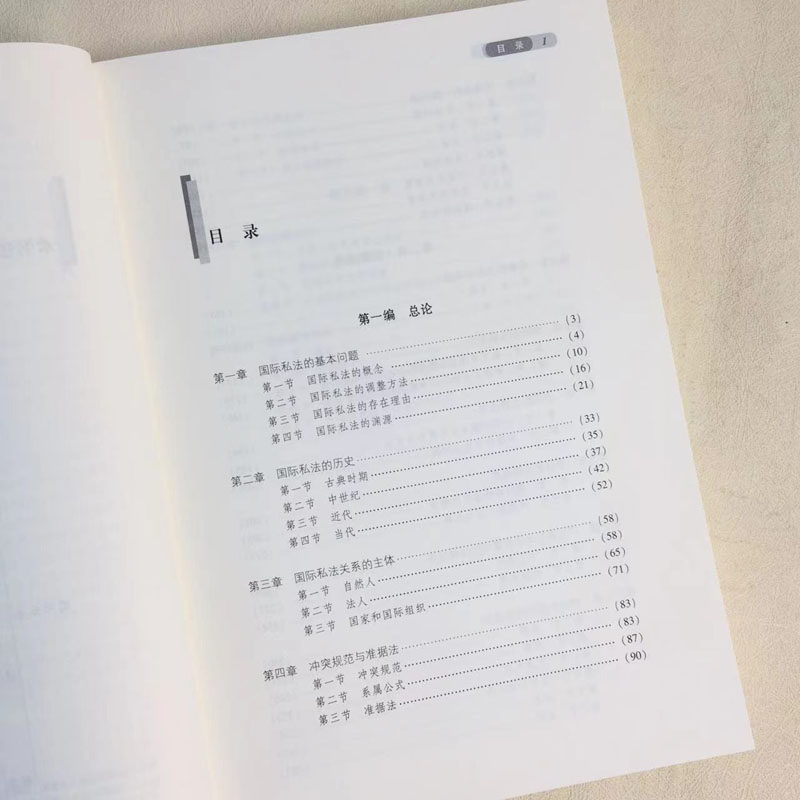 目 录 1
目 录
第一编 总论
第一章 国际私法的基本问题 (3)
第一节 国际私法的概念 (4)
第二节 国际私法的调整方法 (10)
第三节 国际私法的存在理由 (16)
第四节 国际私法的渊源 (21)
第二章 国际私法的历史 (33)
第一节 古典时期 (35)
第二节 中世纪 (37)
第三节 近代 (42)
第四节 当代 (52)
第三章 国际私法关系的主体 (58)
第一节 自然人 (58)
第二节 法人 (65)
第三节 国家和国际组织 (71)
第四章 冲突规范与准据法 (83)
第一节 冲突规范 (83)
第二节 系属公式 (87)
第三节 准据法 (90)